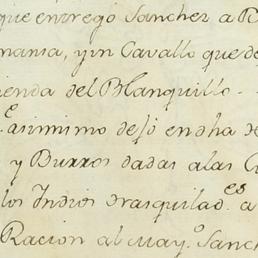 que entregó Sanchez a R
mania, y un Cavallo que de
ienda del Blanquillo.
e asimimo dejó en dha de
y Burros dadas a las C
los Indios trasquilad.es a
Racion al May.º Sanc